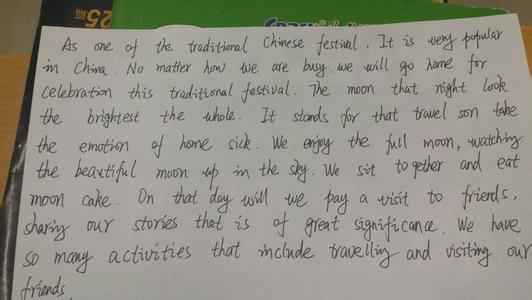 25
As one of the traditional Chinese festival. It is very popular
in China. No matter how we are busy. we will go home for
celebration this traditional festival. The moon that night look
the brightest the whole. It stands for that travel son take
the emotion of home sick. We enjoy the full moon, watching
the beautiful moon up in the sky. We sit together and eat
moon cake. On that day will we pay a visit to friends,
sharing our stories that is of great significance. We have
so many activities that include travelling and visiting our
friends